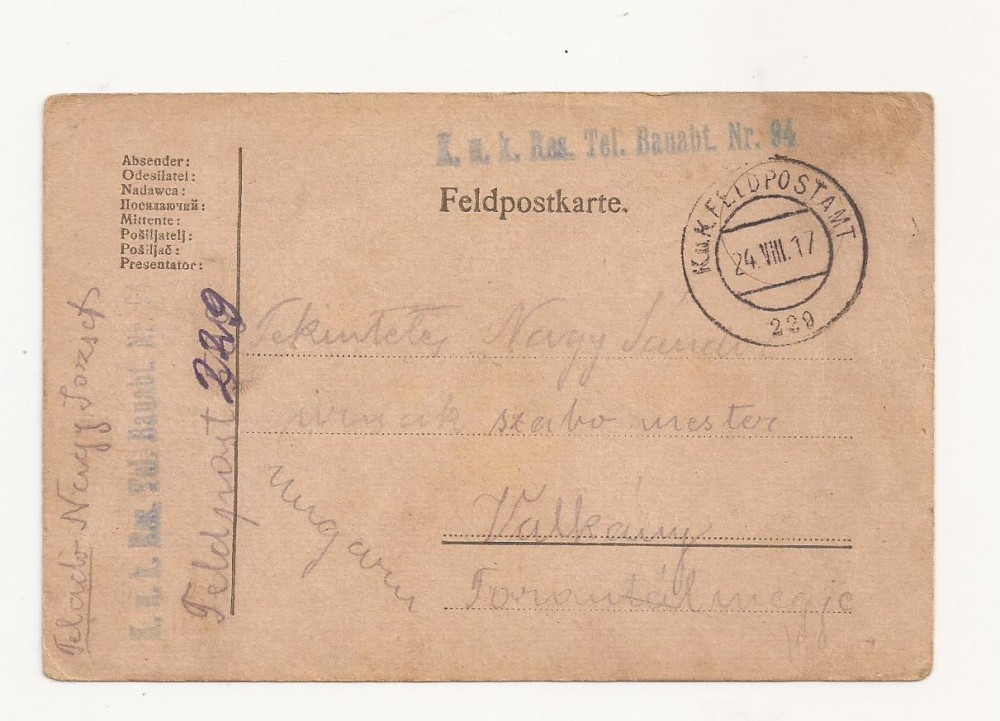 K. u. k. Res. Tel. Bauabt. Nr. 94
Feldpostkarte.
K.u.K. FELDPOSTAMT
24.VIII.17
229
Absender:
Odesílatel:
Nadawca:
Посилаючий:
Mittente:
Pošiljatelj:
Pošiljač:
Presentator:
Feladó Nagy József
K. u. k. Res. Tel. Bauabt. Nr. 94
Feldpost 229
Tekintetes Nagy Sándor
urnak szabo mester
Ungarn
Valkány
Torontál megye